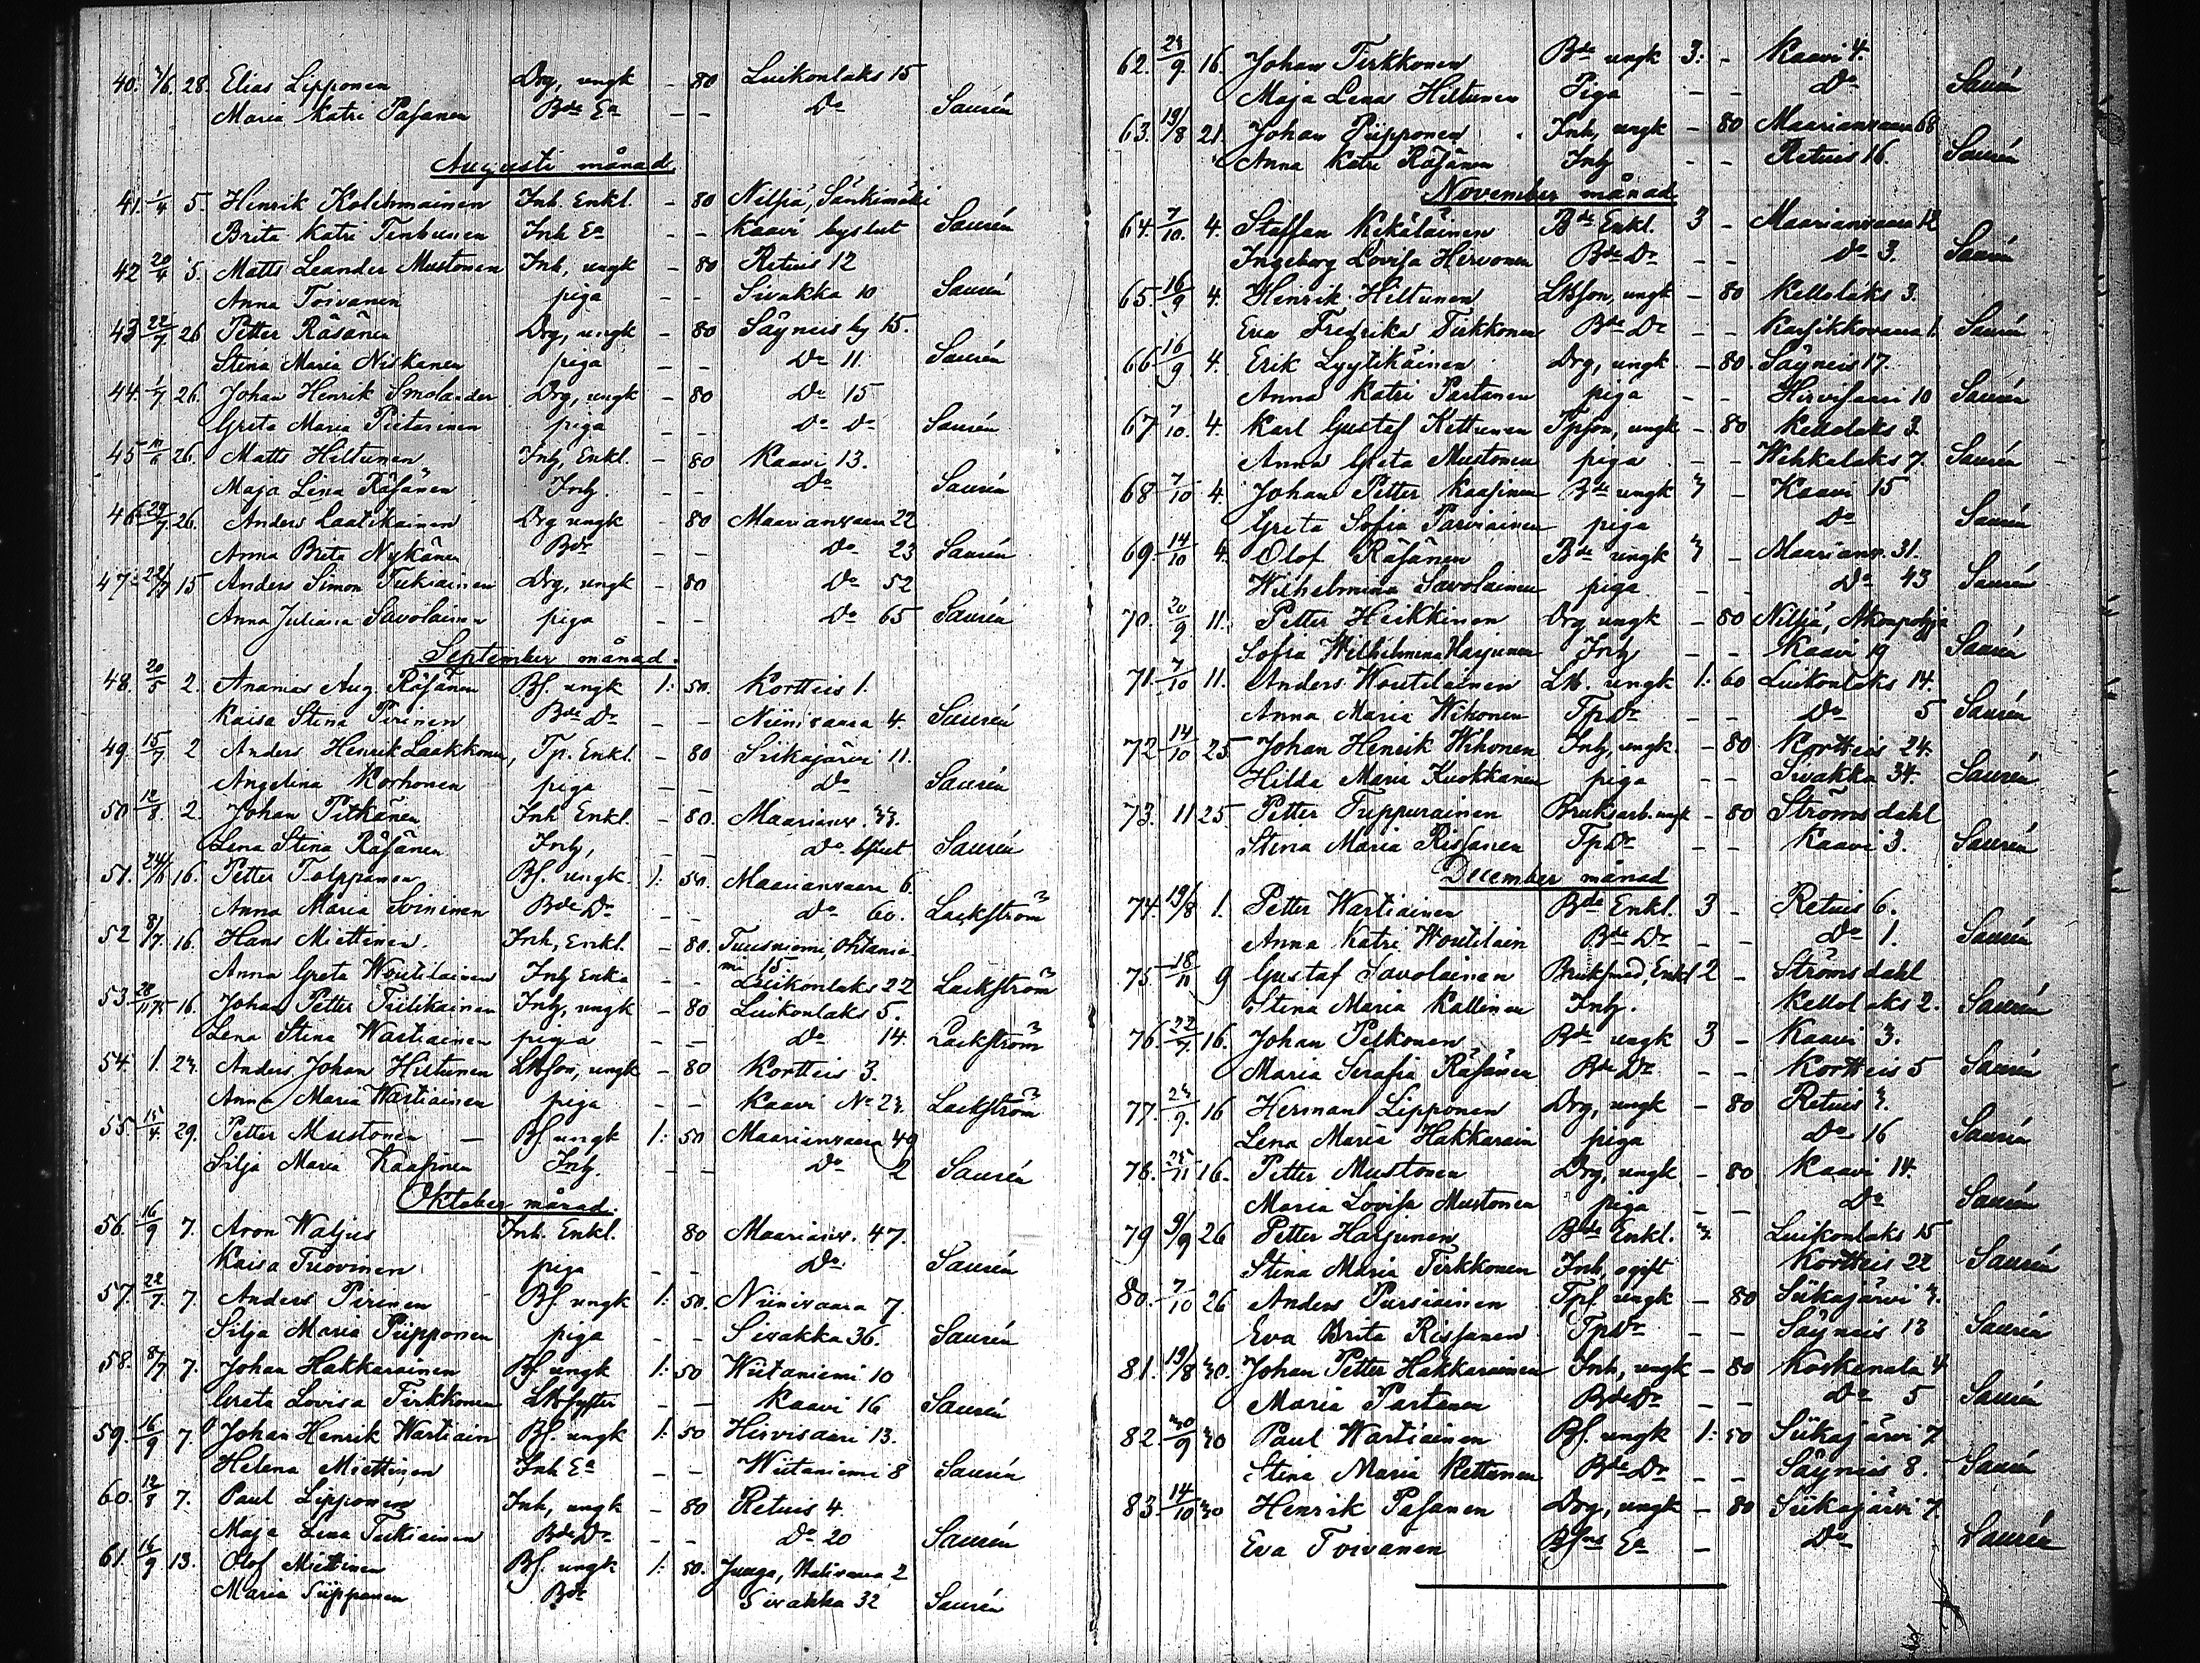 40. 7/6. 28. Elias Lipponen Drg, ungk - 80 Luikonlaks 15
Maria Katri Pasanen Bde Ea - - Do Saurén
Augusti månad.
41. 1/4 5. Henrik Kolehmainen Inh. Enkl. - 80 Nilsiä, Sänkimäki
Brita Katri Tenhunen Inh Ea - - Kaavi byslut Saurén
42 20/4 5. Matts Leander Mustonen Inh, ungk - 80 Retuis 12
Anna Toivanen piga - - Sivakka 10 Saurén
43 22/7 26 Petter Räsänen Drg, ungk - 80 Säyneis by 15.
Stina Maria Niskanen piga - - Do 11. Saurén
44. 1/7 26. Johan Henrik Smolander Drg, ungk - 80 Do 15
Greta Maria Pietarinen piga - - Do Do Saurén
45 26. Matts Hiltunen Inh, Enkl. - 80 Kaavi 13.
Maja Lena Räsänen Inh. - - Do Saurén
46. 29/7 26. Anders Laatikainen Drg ungk - 80 Maarianvaara 22
Anna Brita Nykänen Bdr - - Do 23 Saurén
47. 22/7 15 Anders Simon Tukiainen Drg, ungk - 80 Do 52
Anna Juliana Savolainen piga - - Do 65 Saurén
September månad.
48. 20/5 2. Ananias Aug. Räsänen Bf. ungk 1: 50. Kortteis 1.
Kaisa Stina Pirinen Bde Dr - - Niinivaara 4. Saurén
49. 15/7 2 Anders Henrik Laakkonen, Tp. Enkl. - 80 Siikajärvi 11.
Angelina Korhonen piga - - Do Saurén
50 12/8. 2. Johan Pitkänen Inh Enkl. - 80. Maarianv. 33.
Lena Stina Räsänen Inh, - - Do bslut Saurén
51. 24/6 16. Petter Tolppanen Bf. ungk. 1: 50. Maarianvaara 6.
Anna Maria Soininen Bde Dr - - Do 60. Lackström
52 8/7. 16. Hans Miettinen. Inh, Enkl. - 80. Tuusniemi, Ohtanie
mi 15
Anna Greta Woutilainen Inh Enka - - Luikonlaks 22 Lackström
53. 28/11 75 16. Johan Petter Tiilikainen Inh, ungk - 80 Luikonlaks 5.
Lena Stina Wartiainen piga - - Do 14. Lackström
54. 1. 23. Anders Johan Hiltunen LBson, ungk - 80 Kortteis 3.
Anna Maria Wartiainen piga - - Kaavi No 23. Lackström
55. 15/4. 29. Petter Mustonen - Bf ungk 1: 50. Maarianvaara 49
Silja Maria Kaasinen Inh. - - Do 2 Saurén
Oktober månad.
56. 16/9 7. Aron Watjus Inh. Enkl. 80 Maarianv. 47.
Kaisa Tuovinen piga - - Do Saurén
57. 22/7. 7. Anders Pirinen Bf ungk 1: 50. Niinivaara 7.
Silja Maria Piipponen piga - - Sivakka 36. Saurén
58. 8/7 7. Johan Hakkarainen Bf ungk 1: 50 Wiitaniemi 10
Greta Lovisa Tirkkonen LBsyster - - Kaavi 16 Saurén
59. 16/9 7. Johan Henrik Wartiain Bf. ungk 1: 50 Hirvisaari 13.
Helena Miettinen Inh Ea - - Wiitaniemi 8 Saurén
60. 12/8 7. Paul Lipponen Inh, ungk - 80 Retuis 4.
Maja Lena Tukiainen Bde Dr - - Do 20 Saurén
61. 16/9 13. Olof Miettinen Bf. ungk 1: 50. Juuga, Halivaara 2
Maria Piipponen Bdr Sivakka 32 Saurén
62. 23/9. 16. Johan Tirkkonen Bde ungk 3: - Kaavi 4.
Maja Lena Hiltunen Piga - - Do Saurén
63. 19/8 21. Johan Piipponen Inh, ungk - 80 Maarianvaara 68
Anna Katri Räsänen Inh - - Retuis 16. Saurén
November månad
64. 7/10. 4. Staffan Kekäläinen Bde Enkl. 3 - Maarianvaara 12
Ingeborg Lovisa Hirvonen Bde Dr - - Do 3. Saurén
65. 16/9 4. Henrik Hiltunen LBson, ungk - 80 Kellolaks 3.
Eva Fredrika Tirkkonen Bde Dr - - Karsikkovaara 1. Saurén
66 16/9 4. Erik Lyytikäinen Drg, ungk - 80. Säyneis 17.
Anna Katri Partanen piga - - Hirvisaari 10 Saurén
67 7/10. 4. Karl Gustaf Kettunen Tpson, ungk - 80 Kellolaks 3.
Anna Greta Mustonen piga - - Wehkalaks 7. Saurén
68 7/10 4. Johan Petter Kaasinen Bde ungk 3 - Kaavi 15
Greta Sofia Parviainen piga Do Saurén
69. 14/10 4. Olof Räsänen Bde ungk 3 - Maarianv. 31.
Wilhelmina Savolainen piga - - Do 43 Saurén
70. 20/9 11. Petter Heikkinen Drg ungk - 80 Nilsiä, Akonpohja
Sofia Wilhelmina Harjunen Inh - - Kaavi 19 Saurén
71. 7/10 11. Anders Woutilainen LB. ungk 1: 60 Luikonlaks 14.
Anna Maria Wihonen Tp Dr - - Do 5 Saurén
72 14/10 25 Johan Henrik Wihonen Inh, ungk. - 80 Kortteis 24.
Hilda Maria Kuokkanen piga - - Sivakka 34. Saurén
73. 11 25. Petter Tuppurainen Bruksarb. ungk - 80 Strömsdahl
Stina Maria Rissanen Tp Dr - - Kaavi 3. Saurén
December månad
74. 19/8 1. Petter Wartiainen Bde Enkl. 3 - Retuis 6.
Anna Katri Woutilain Bde Dr - - Do 1. Saurén
75 18/11 9 Gustaf Savolainen Bruksmed, Enkl 2 - Strömsdahl
Stina Maria Kallinen Inh. Kellolaks 2. Saurén
76. 22/7. 16. Johan Pelkonen Bde ungk 3 - Kaavi 3.
Maria Serafia Räsänen Bde Dr - - Kortteis 5 Saurén
77. 23/9. 16 Herman Lipponen Drg, ungk - 80 Retuis 3.
Lena Maria Hakkarain piga Do 16 Saurén
78. 25/11 16. Petter Mustonen Drg, ungk - 80 Kaavi 14.
Maria Lovisa Mustonen piga - - Do Saurén
79 9/9 26 Petter Harjunen Bde Enkl. 3. Luikonlaks 15
Stina Maria Tirkkonen Inh, ogift Kortteis 22 Saurén
80. 7/10 26 Anders Pursiainen Tpl. ungk - 80 Siikajärvi 3.
Eva Brita Rissanen Tp Dr - - Säyneis 13 Saurén
81. 19/8 30. Johan Petter Hakkarainen Inh, ungk - 80 Koskenala 4
Maria Partanen Bde Dr - - Do 5 Saurén
82. 30/9 30 Paul Wartiainen Bf. ungk 1: 50 Siikajärvi 7.
Stina Maria Kettunen Bde Dr - - Säyneis 8. Saurén
83 14/10 30 Henrik Pasanen Drg, ungk - 80 Siikajärvi 7.
Eva Toivanen Bfns Ea - Do Saurén